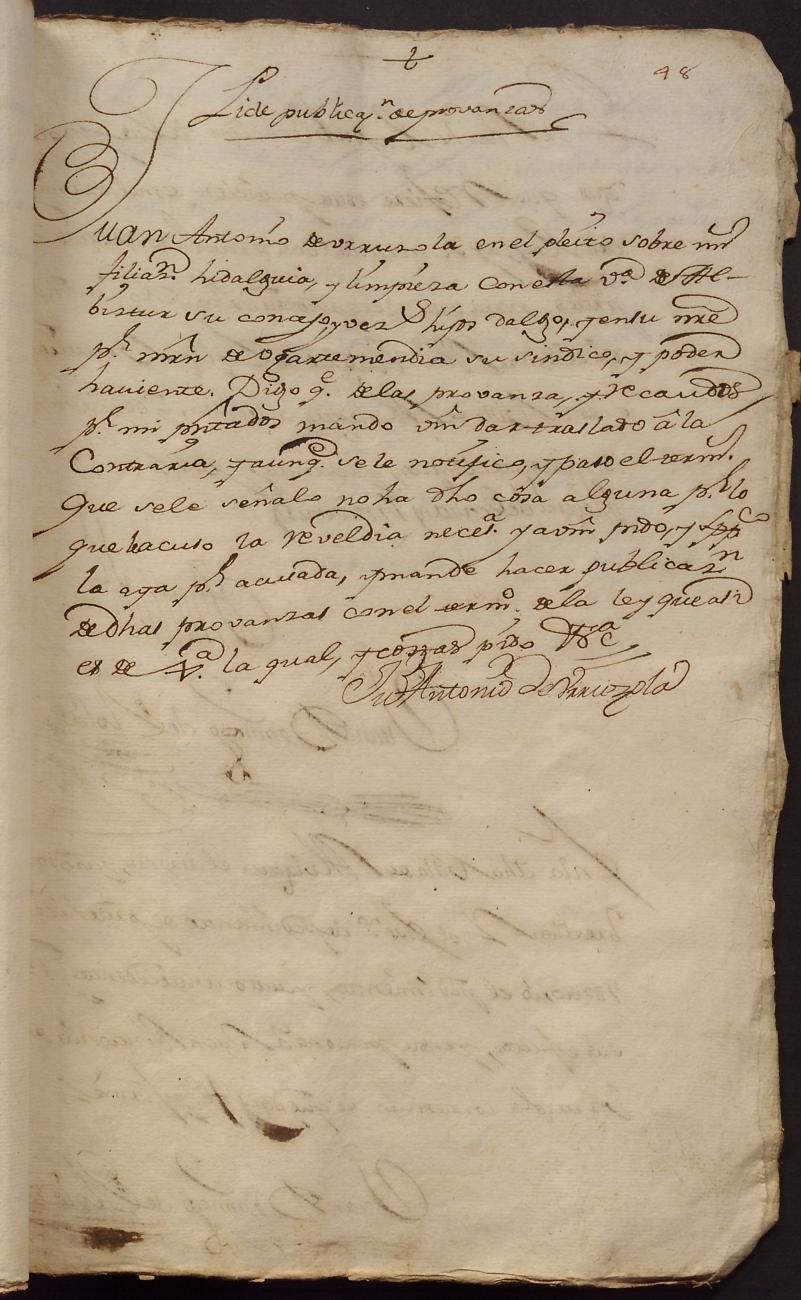 48
Pide publicaz.n de provanzas
Juan Antonio de vrruzola en el pleito sobre mi
filiaz.n hidalguia, y limpieza con esta v.a de Al-
biztur su concejo, y vez.s hijos dalgo, y en su nre
p.r mrn de ogartemendia su sindico, y poder
haviente. Digo q.e de las provanza, y recaudos
p.r mi pntados mando vm dar traslado â la
Contraria, y aunq.e se le notifico, y paso el term.o
que se le señalo no ha dho cosa alguna p.r lo
que le acuso la reveldia neces.a y a vm pido, y sup.co
la aya p.r acusada, y mande hacer publicaz.n
de dhas provanzas con el term.o de la ley que asi
es de Jus.a la qual, y costas pido &c.a
Ju.n Antonio de Vrruzola